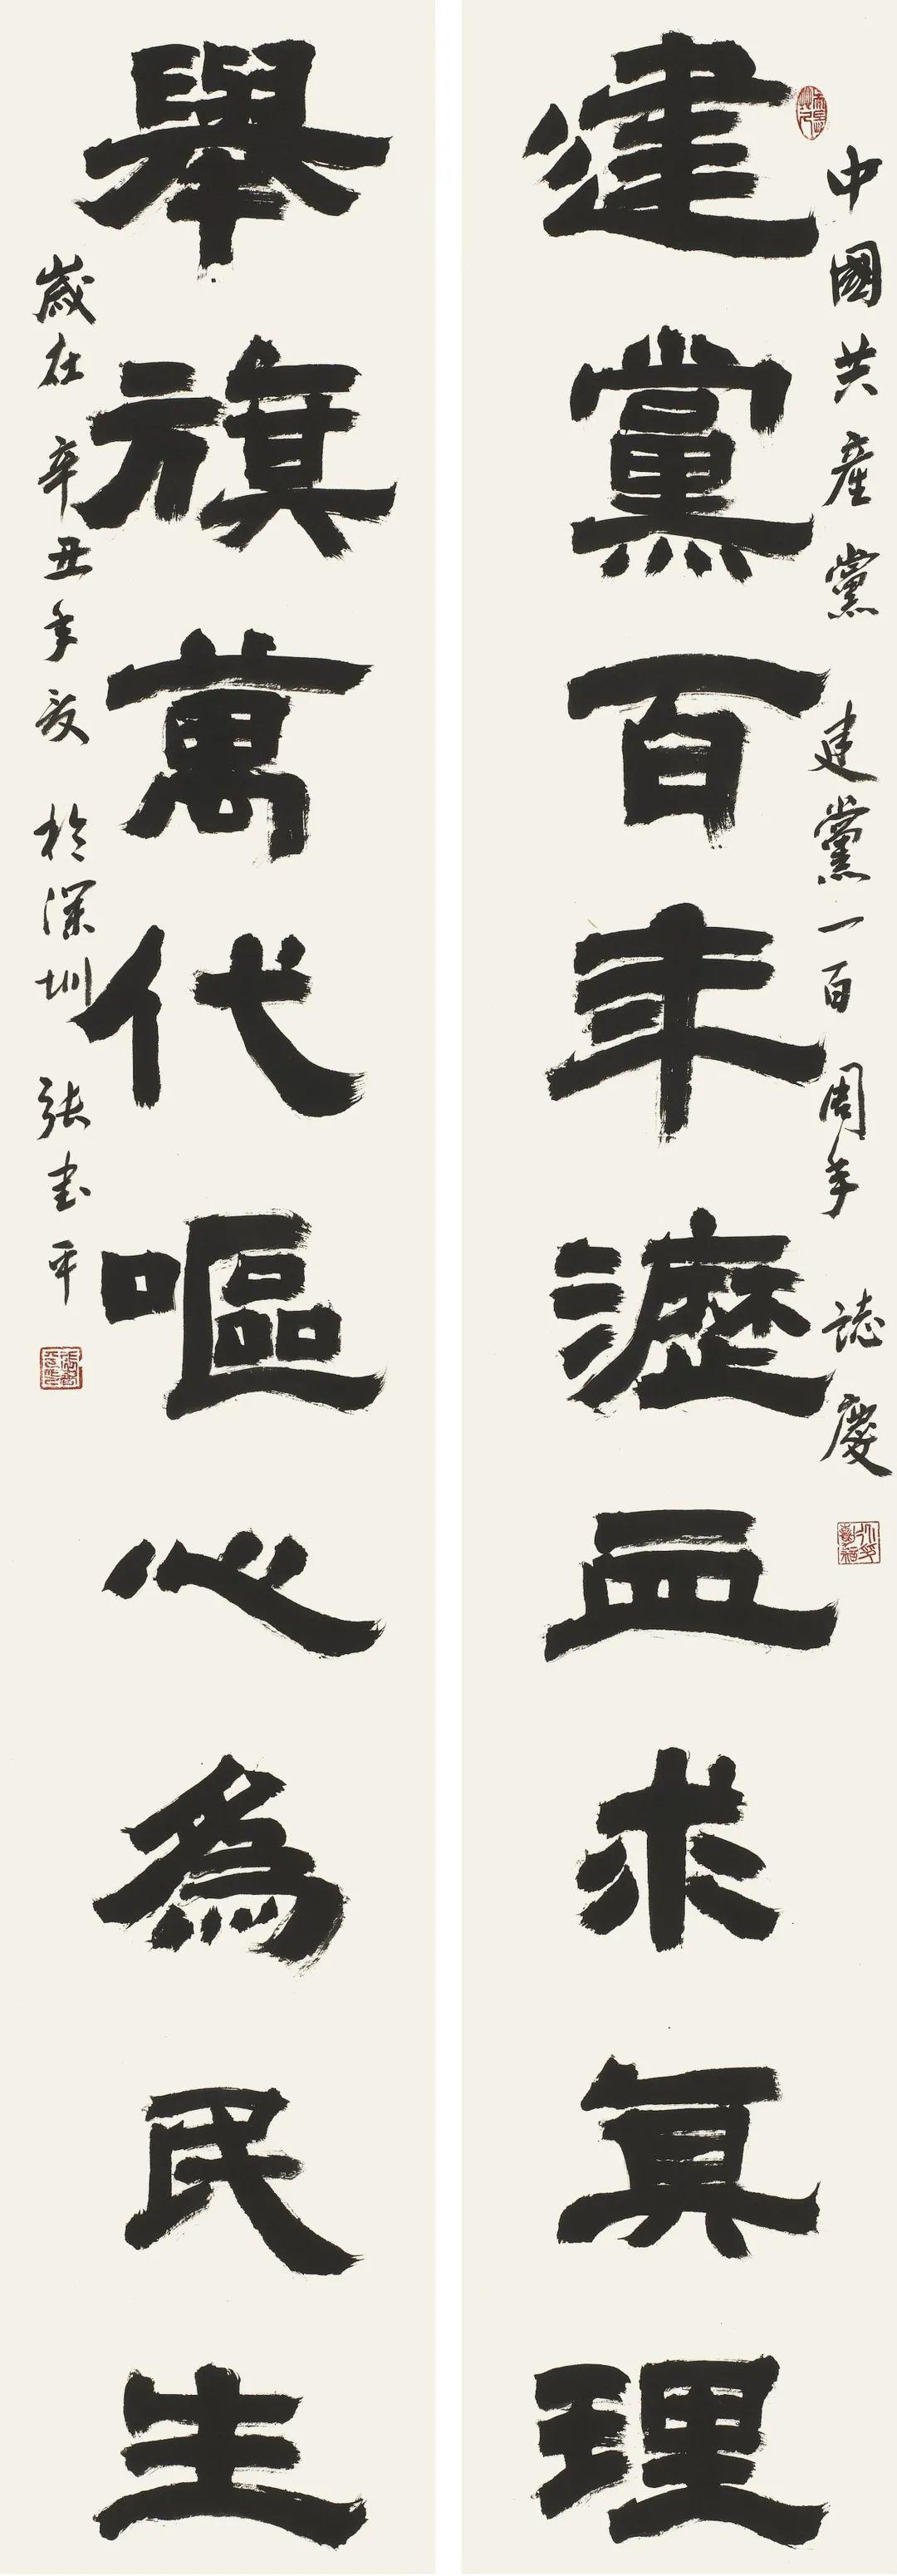 中國共産黨 建黨一百周年 誌慶
建黨百年瀝血求真理
舉旗萬代嘔心為民生
歲在辛丑年 於深圳 張書平